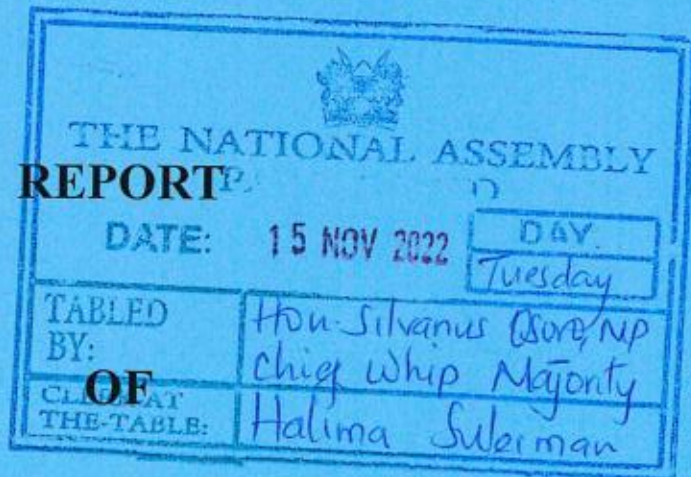 THE NATIONAL ASSEMBLY
REPORT
DATE: 15 NOV 2022 DAY.
Tuesday
TABLED Hon. Silvanus Osoro, MP
BY: Chief Whip Majority
OF
THE-TABLE: Halima Suleiman